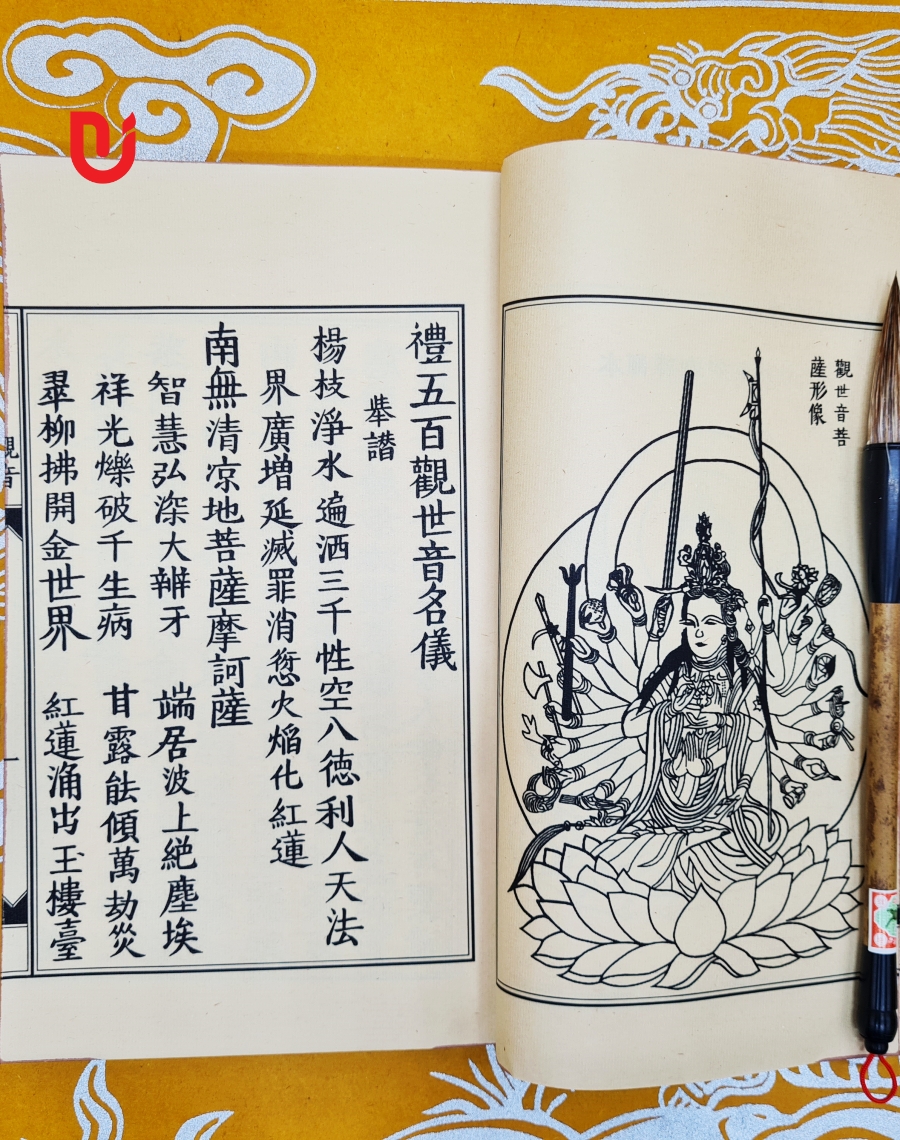 觀世音菩
薩形像
禮五百觀世音名儀
舉讃
楊枝淨水遍洒三千性空八德利人天法
界廣增延滅罪消愆火焰化紅蓮
南無清凉地菩薩摩訶薩
智慧弘深大辨牙　端居波上絕塵埃
祥光爍破千生病　甘露能傾萬劫災
翠柳拂開金世界　紅蓮涌出玉樓臺